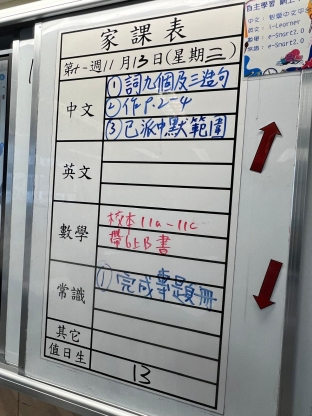 家課表
第十一週11月13日(星期三)
中文
①詞九個及三造句
②作P.2-4
③已派中默範圍
英文
數學
校本11a-11c
帶6上B書
常識
①完成專題冊
其它
值日生
13
自主學習 網上
中文:
英文: i-Learner
數學: e-Smart2.0
常識: e-Smart2.0